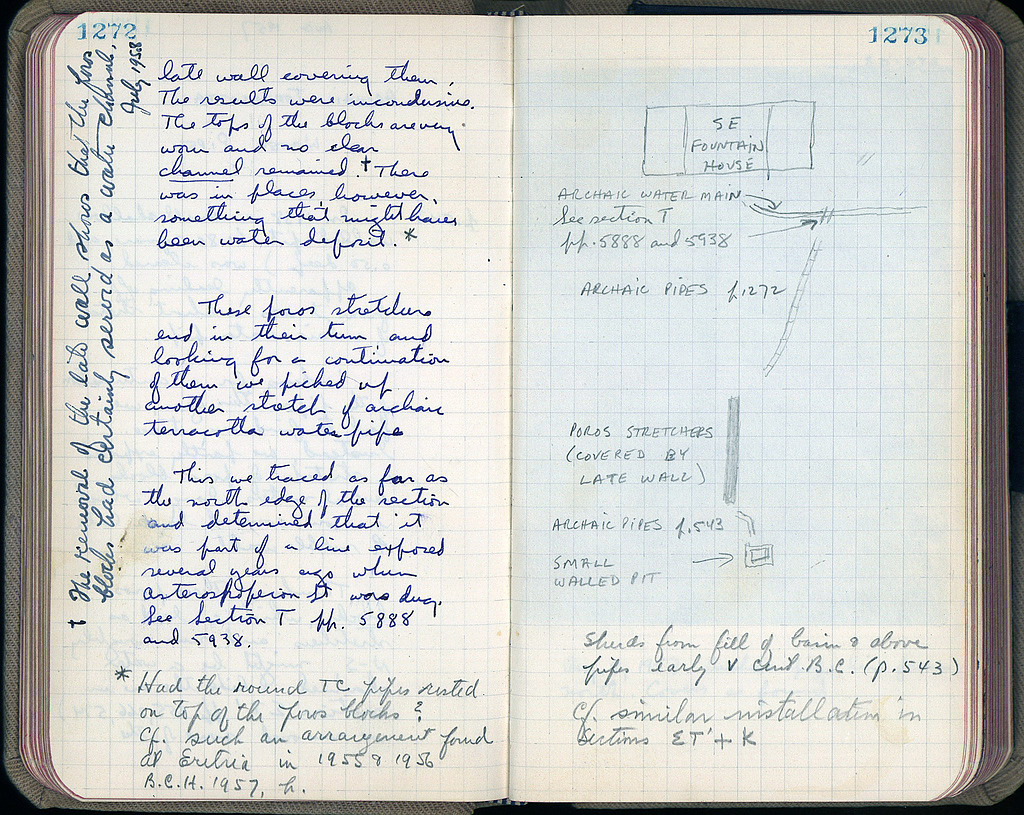 1272
late wall covering them.
The results were inconclusive.
The tops of the blocks are very
worn and no clear
channel remained.† There
was in places, however,
something that might have
been water deposit.*
These poros stretchers
end in their turn and
looking for a continuation
of them we picked up
another stretch of archaic
terracotta water pipe
This we traced as far as
the north edge of the section
and determined that it
was part of a line exposed
several years ago when
Asteroskopeion St was dug.
See Section T pp. 5888
and 5938.
* Had the round TC pipes rested
on top of the poros blocks?
Cf. such an arrangement found
at Eretria in 1955 & 1956
B.C.H. 1957, p.
† The removal of the late wall shows that the poros
blocks had certainly served as a water channel.
July 1958
1273
SE
FOUNTAIN
HOUSE
ARCHAIC WATER MAIN
See section T
pp. 5888 and 5938
ARCHAIC PIPES p.1272
POROS STRETCHERS
(COVERED BY
LATE WALL)
ARCHAIC PIPES p.543
SMALL
WALLED PIT
Sherds from fill of basin & above
pipes early V cent. B.C. (p.543)
Cf. similar installation in
Sections ΣΤ' + K